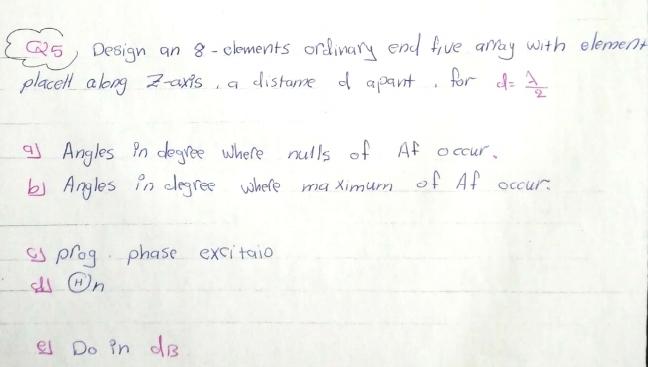 Q5, Design an 8-elements ordinary end five array with element
placett along Z-axis, a distame d apant. for d= λ/2
a) Angles in degree where nulls of Af occur.
b) Angles in degree where maximum of Af occur.
c) prog. phase excitaio
d) Ⓗn
e) Do in dB